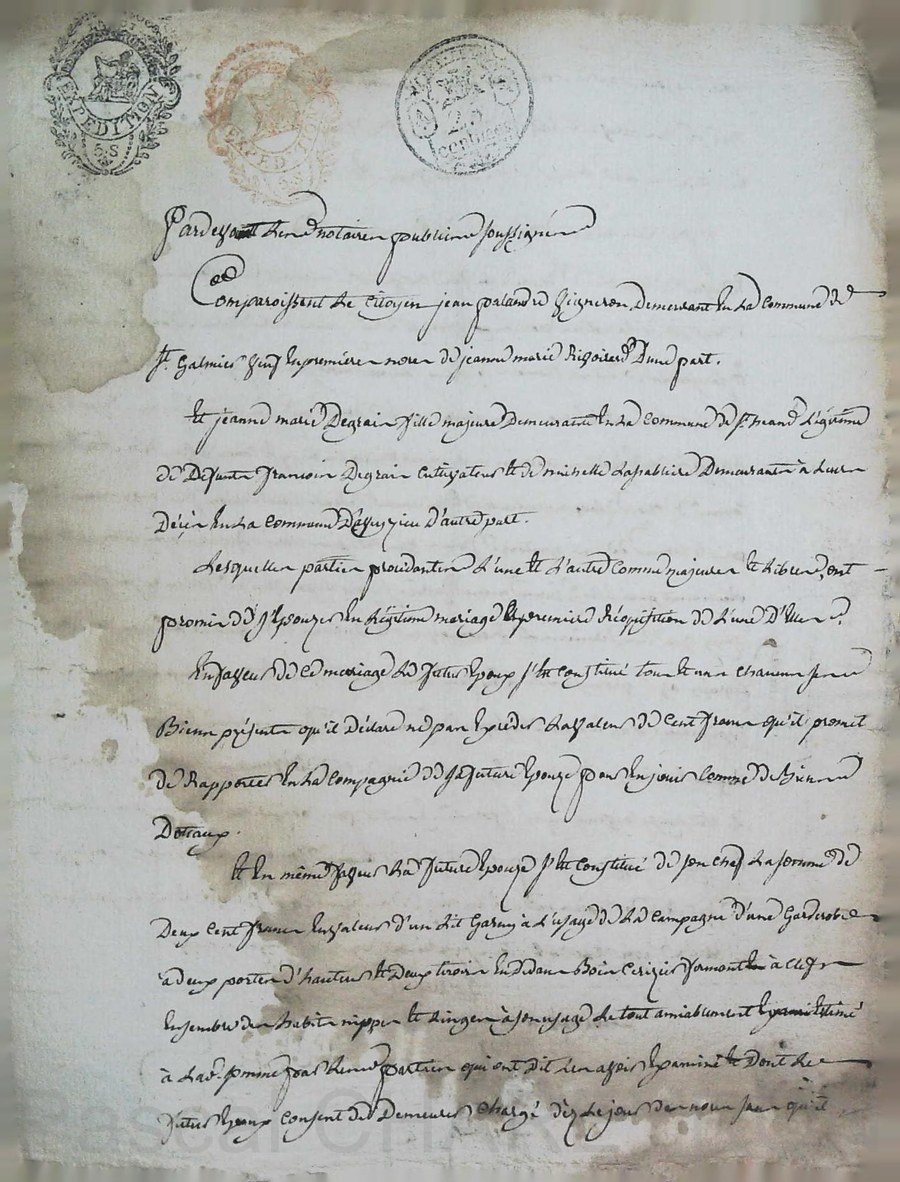 EXPEDITION
5.S
EXPEDITION
5.S
25
centimes
Pardevant Les notaires publics soussignés
Comparoissent Le Citoyen jean palandre Vigneron Demeurant En La Commune de
St. Galmier Veuf En première noces de jeanne marie Rigoirard D'une part.
Et jeanne marie Degrain fille majeure Demeurante En La Commune de Légitime
de Défunts françois Degrain Cultivateur Et de michelle Demeurants à Leurs
Décès En La Commune D'aveyzieu D'autre part.
Lesquelles parties procédantes L'une Et L'autre Comme majeures Et Libres, ont
promis de S'Epouzer En Légitime mariage a première Réquisition de L'une D'Elles.
En faveur de Ce mariage Le futur Epoux S'Est Constitué tous Et uns Chacuns Ses
Biens présents qu'il Déclare ne pas Excéder La Valeur de Cent francs qu'il promet
de Rapporter En La Compagnie de Sa future Epouze pour En jouir Comme de Biens
Dotaux.
Et En même faveur La future Epouze S'Est Constitué de Son Chef La Somme de
Deux Cent francs En Valeur d'un Lit Garny à L'usage de La Campagne d'une Garderobe
a deux portes d'hauteur Et Deux tiroirs En Dedans Bois Cerizier fermant à Clefs
Ensembre des habits nippes Et Linges à Son usage Le tout amiablement Estimé
à Lad. Somme par Les parties qui ont Dit L'avoir Examiné Et Dont Le
futur Epoux Consent de Demeurer Chargé Dès Le jour des noces Sans qu'il